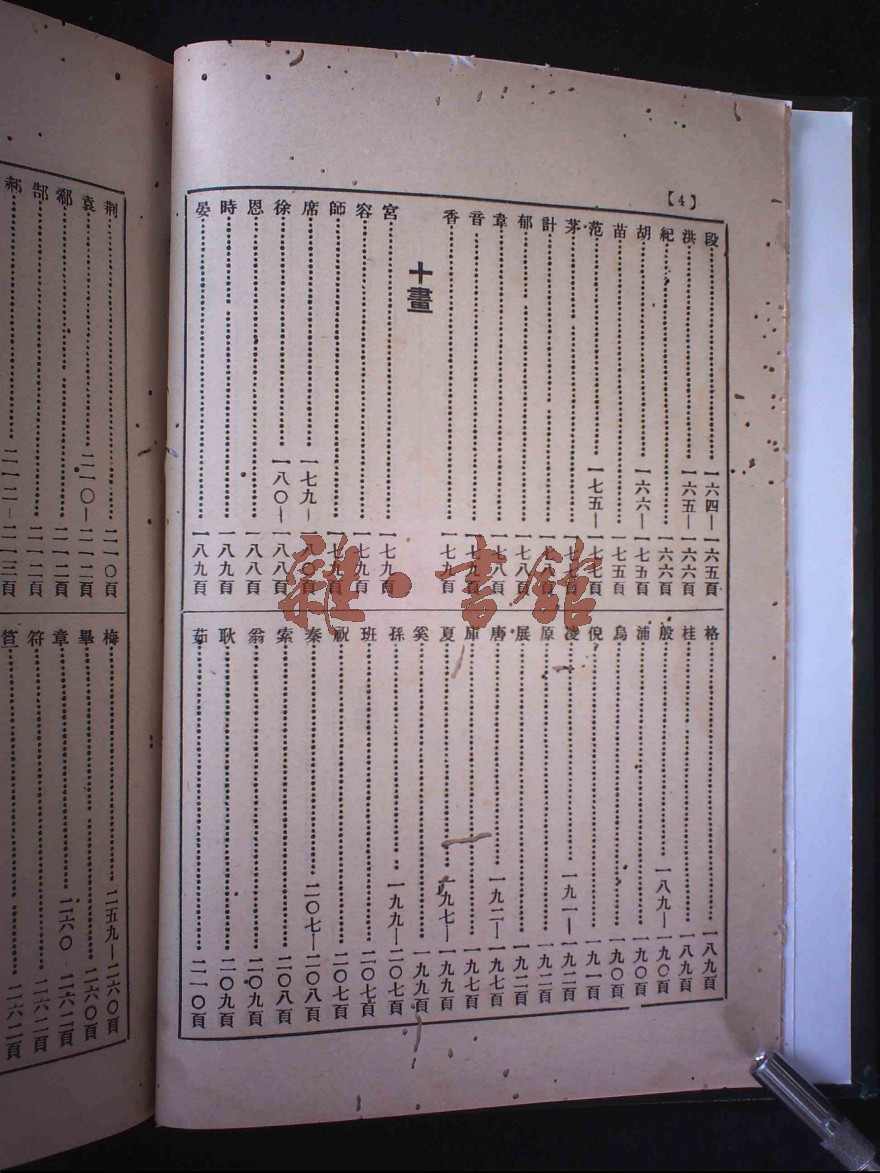 【4】
段 一六四—一六五頁
洪 一六五—一六六頁
紀 一六六頁
胡 一六六—一七五頁
苗 一七五頁
范 一七五—一七七頁
茅 一七七頁
計 一七八頁
郁 一七八頁
韋 一七八頁
音 一七九頁
香 一七九頁
十畫
宮 一七九頁
容 一七九頁
師 一七九頁
席 一七九—一八〇頁
徐 一八〇—一八八頁
恩 一八八頁
時 一八九頁
晏 一八九頁
格 一八九頁
桂 一八九頁
殷 一八九—一九〇頁
浦 一九〇頁
烏 一九〇頁
倪 一九一頁
凌 一九一—一九二頁
原 一九二頁
展 一九二頁
唐 一九二—一九七頁
庫 一九七頁
夏 一九七—一九九頁
奚 一九九頁
孫 一九九—二〇七頁
班 二〇七頁
祝 二〇七頁
秦 二〇七—二〇八頁
索 二〇八頁
翁 二〇九頁
耿 二〇九頁
茹 二一〇頁
荆 二一〇頁
袁 二一〇—二一二頁
二一二頁
郜 二一二頁
郝 二一二—二一三頁
梅 二五九—二六〇頁
畢 二六〇頁
章 二六〇 二六二頁
符 二六二頁
笪 二六二頁
雜·書館